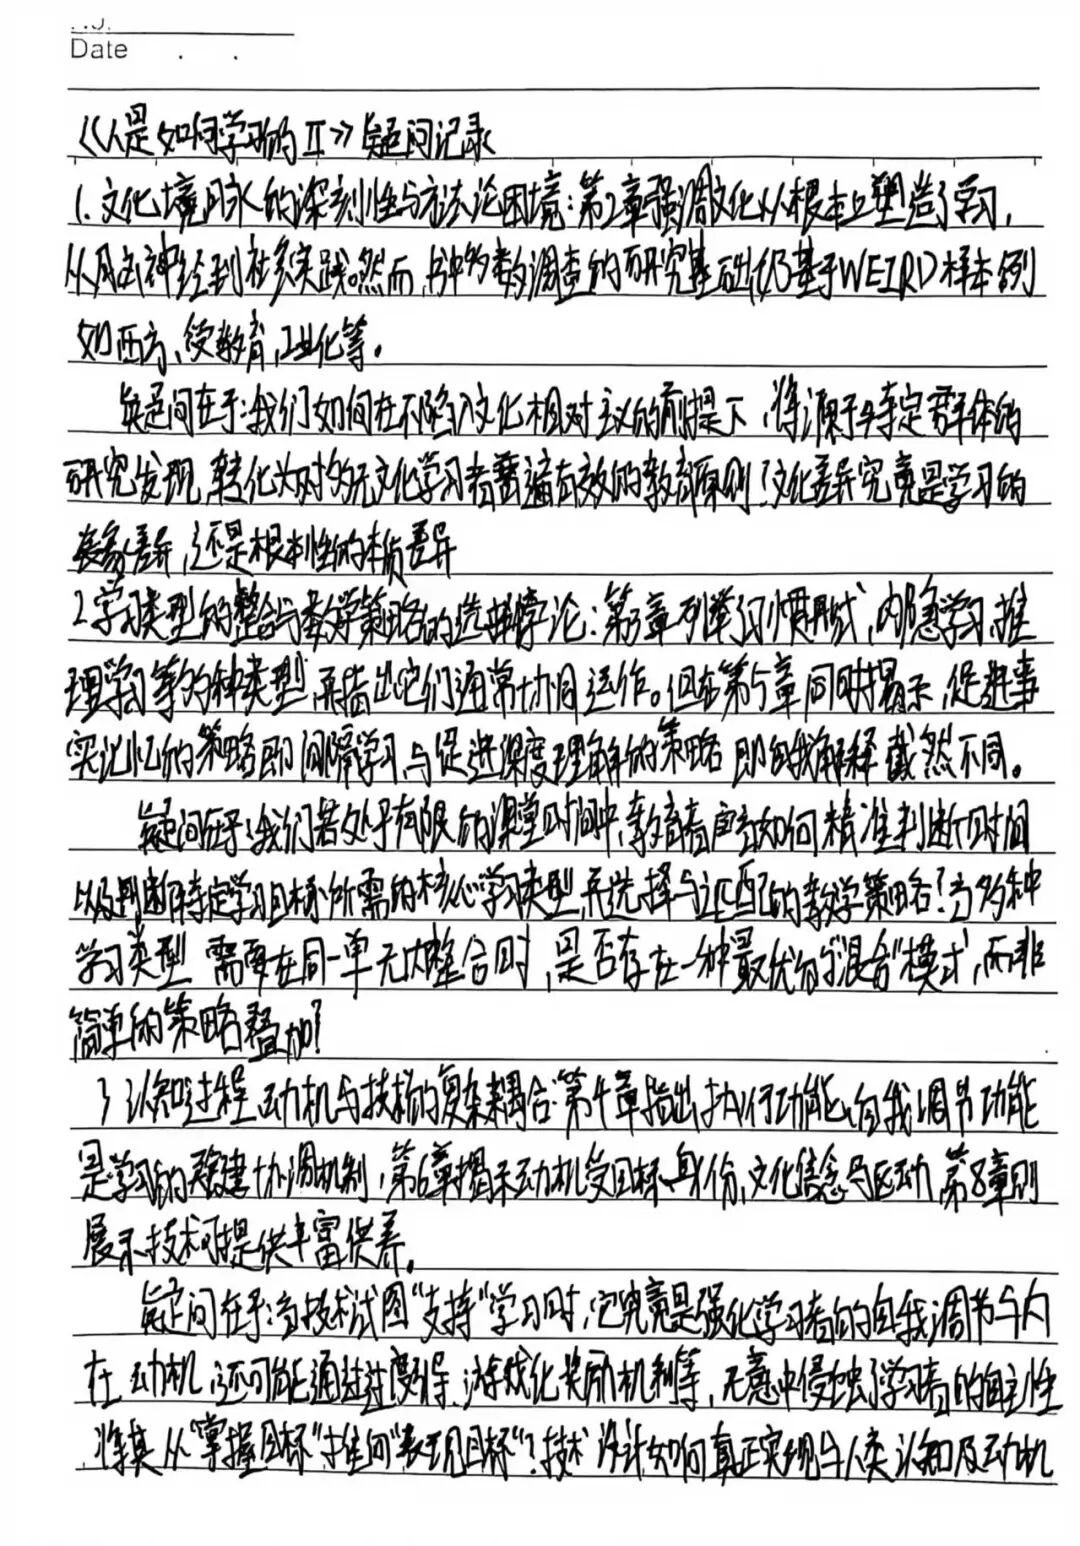 Date
《人是如何学习的 II》疑问记录
1. 文化境脉的深刻性与方法论困境：第2章强调文化从根本上塑造了学习，
从 神经到社会实践。然而，书中多数调查的研究基础仍基于WEIRD样本例
如西方、受教育，工业化等。
疑问在于：我们如何在不陷入文化相对主义的前提下，将源于特定群体的
研究发现，转化为对多元文化学习者普遍有效的教育原则？文化差异究竟是学习的
表象差异，还是根本性的本质差异
2.学习类型的整合与教学策略的选择悖论：第3章列举习惯形式，内隐学习、推
理学习等多种类型，并指出它们通常协同运作。但在第5章同时揭示，促进事
实记忆的策略即间隔学习，与促进深度理解的策略即自我解释截然不同。
疑问在于：我们若处于有限的课堂时间中，教育者应如何精准判断时间
以及判断特定学习目标所需的核心学习类型，并选择与之匹配的教学策略？当多种
学习类型 需要在同一单元内整合时，是否存在一种最优的“混合”模式，而非
简单的策略叠加？
3 认知过程 动机与技术的复杂耦合：第4章指出执行功能、自我调节功能
是学习的关键协调机制，第6章揭示动机受目标、身份，文化信念 驱动，第8章则
展示技术可提供丰富供养。
疑问在于：当技术试图“支持”学习时，它究竟是强化学习者的自我调节与内
在 动机，还可能通过过度引导、游戏化奖励机制等，无意中侵蚀了学习者的自主性
将其从“掌握目标”推向“表现目标”？技术设计如何真正实现与人类认知及动机